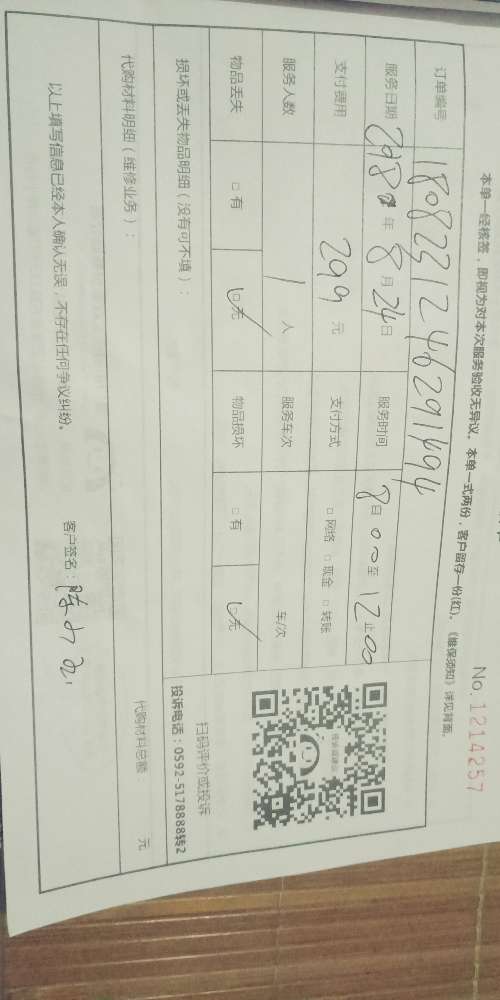 No. 1214257
本单一经核签，即视为对本次服务验收无异议。本单一式两份，客户留存一份(红)。《维保须知》详见背面。
订单编号 1808231246291494
服务日期 2018年8月24日 服务时间 8日00至12止00
支付费用 299 元 支付方式 □网络 □现金 □转账
服务人数 1 人 服务车次 车/次
物品丢失 □有 □无 物品损坏 □有 □无
损坏或丢失物品明细（没有可不填）：
扫码评价或投诉
投诉电话：0592-5178888转2
代购材料明细（维修业务）：
代购材料总额： 元
以上填写信息已经本人确认无误，不存在任何争议纠纷。
客户签名：陈